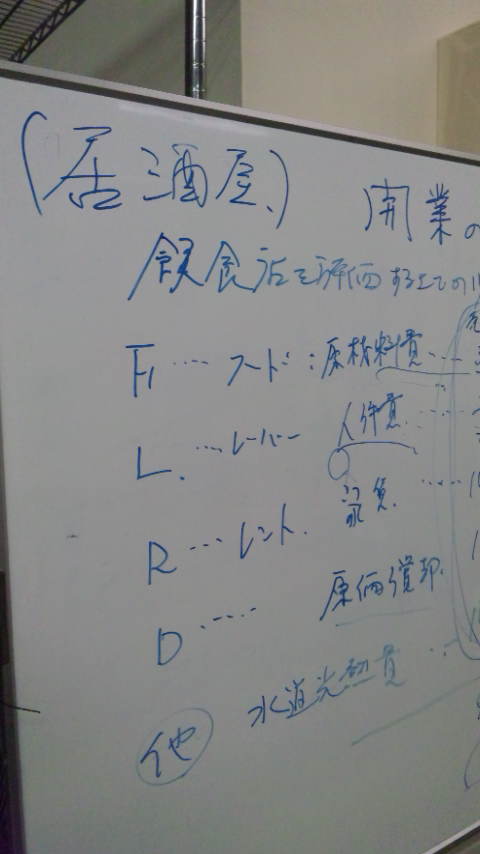 (居酒屋、) 開業の
飲食店を評価する上での
F、…… フード：原材料費……
L、 …レーバー 人件費……
R …レント、 家賃、……
D …… 原価償却、
他 水道光熱費 ……